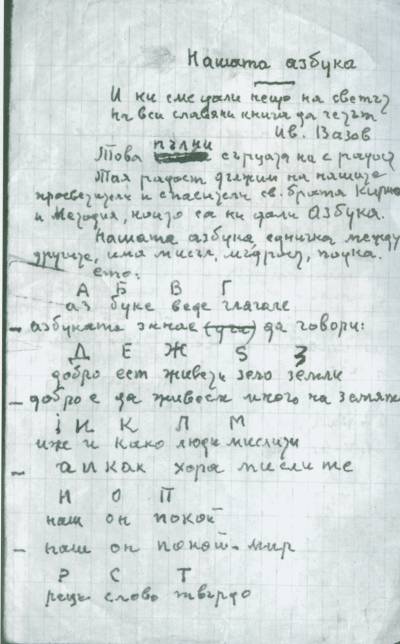 Нашата азбука
И ний сме дали нещо на светът
на вси славяни книга да четът
Ив. Вазов
Това пълни сърцата ни с радост
Тая радост дължим на нашите
просветители и спасители св. братя Кирил
и Методия, които са ни дали Азбука.
Нашата азбука, единична между
другите, има мисъл, мъдрост, поука.
ето:
А Б В Г
аз буке веде глаголе
– азбуката знае да говори:
Д Е Ж Ѕ З
добро ест живети зело земли
– добро е да живееш много на земята
і И К Л М
иже и како люди мислити
– а и как хора мислите
Н О П
наш он покой
– наш он покой - мир
Р С Т
рецы слово твърдо